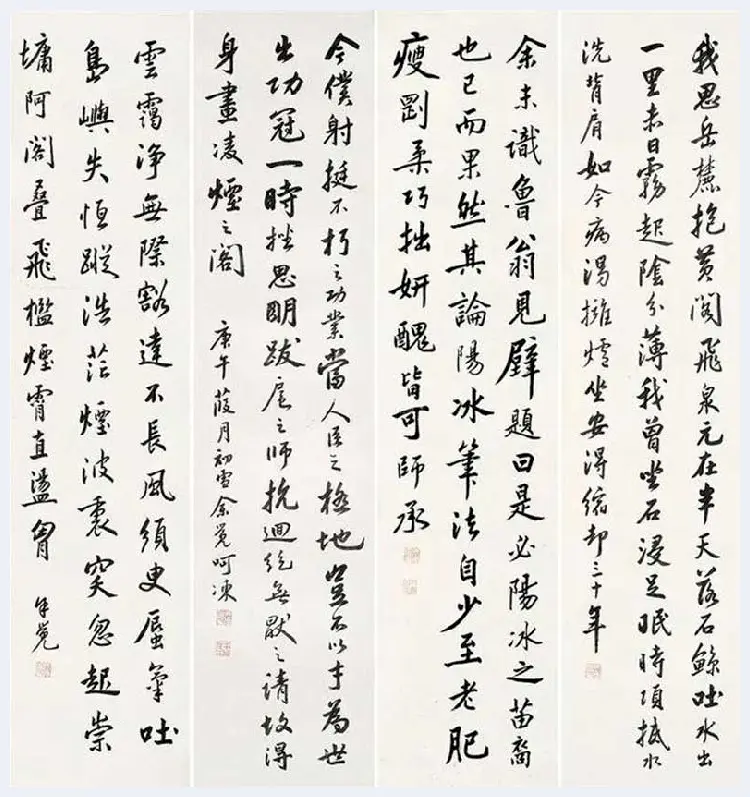 我思岳麓抱黄阁飛泉元在半天落石鯨吐水出
一里赤日霧起陰分薄我曾坐石浸足眠時項抵水
洗背肩如今病渴擁爐坐安得縮却三十年
余未識魯翁見壁題曰是必陽冰之苗裔
也已而果然其論陽冰筆法自少至老肥
瘦剛柔巧拙妍醜皆可師承
今僕射挺不朽之功業當人臣之極地豈不以才為世
出功冠一時挫思明跋扈之師抗迴紇無厭之請故得
身畫凌煙之閣
庚午葭月初雪余覺呵凍
雲靄淨無際豁達不長風須臾蜃氣吐
島嶼失恒蹤浩茫煙波裏突忽起崇
墉阿閣疊飛檻煙霄直盪胸
余覺